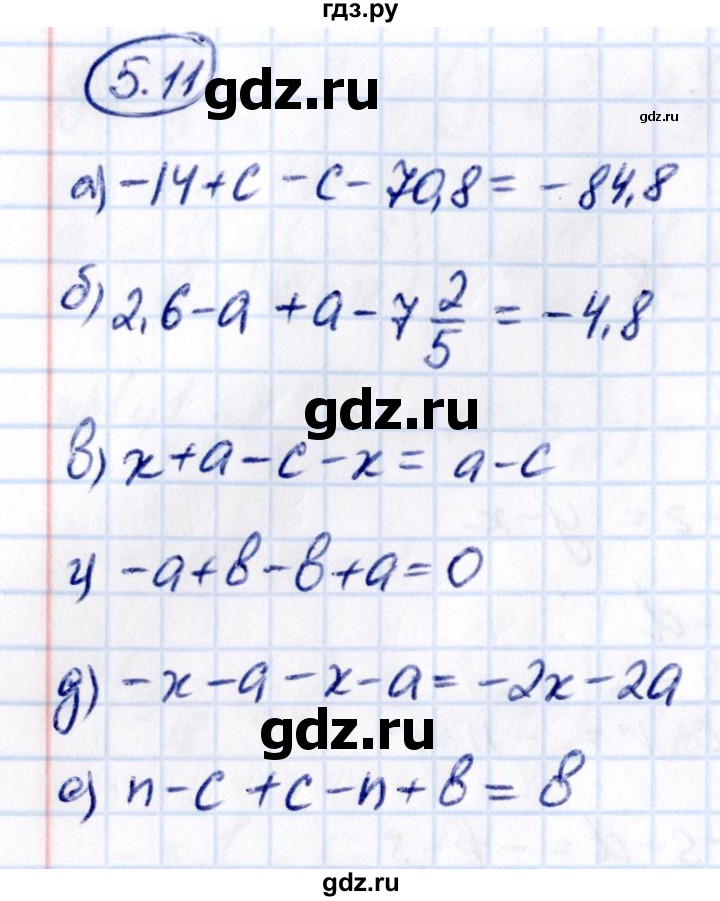 гдз.ру
5.11
gdz.ru
gdz.ru
а) -14+c-c-70,8= -84,8
б) 2,6-a+a-7 2/5 = -4,8
gdz.ru
в) x+a-c-x= a-c
г) -a+b-b+a=0
д) -x-a-x-a= -2x-2a
gdz.ru
е) n-c+c-n+b= b
gdz.ru